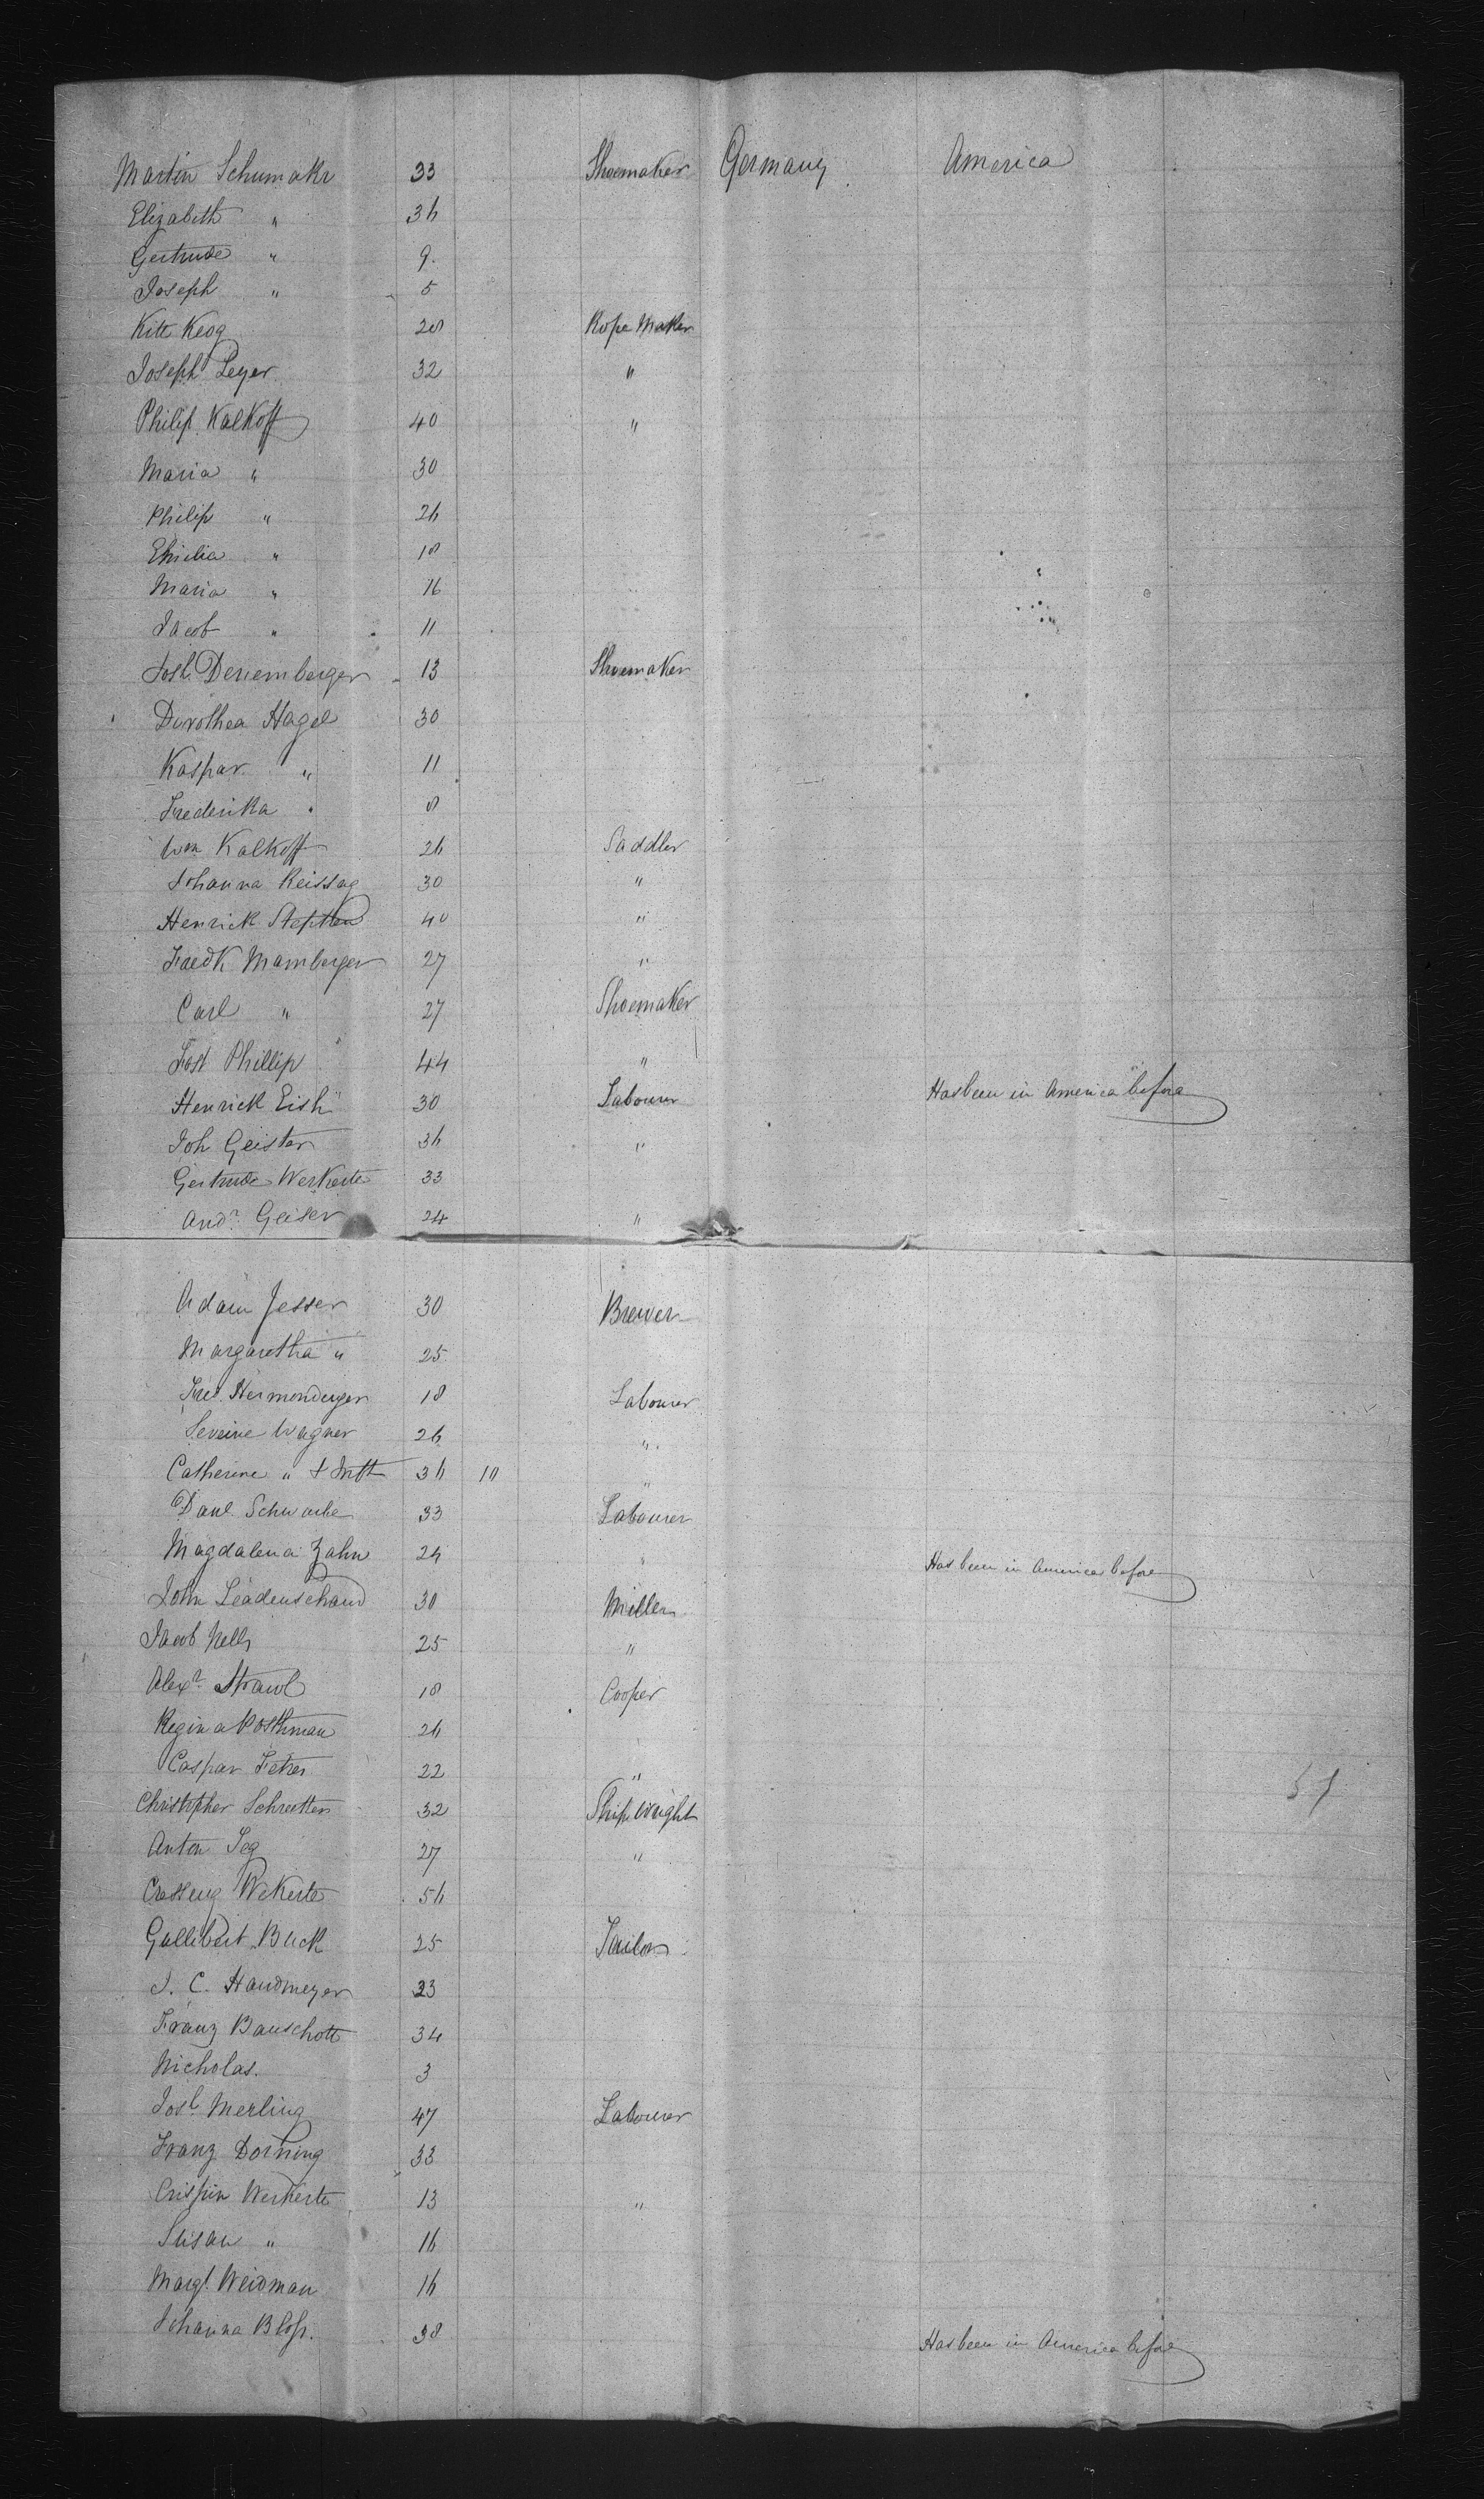 Martin Schumakr 33 Shoemaker Germany America
Elizabeth " 36
Gertrude " 9.
Joseph " 5
Kitt Keog 28 Rope Maker
Joseph Leyer 32 "
Philip Kalkoff 40 "
Maria " 30
Philip " 26
Emilia " 18
Maria " 16
Jacob " 11
Josh. Denemberger 13 Shoemaker
Dorothea Hagel 30
Kaspar " 11
Frederika " 8
Wm Kalkoff 26 Saddler
Johanna Reissag 30 "
Henrick Stephen 40 "
Fredk Mamberger 27 "
Carl " 27 Shoemaker
Jost Phillip 44 "
Henrick Eish 30 Labourer Has been in America before
Joh Geister 36 "
Gertrude Werkerte 33
Andr. Geiser 24 "
Adam Jesser 30 Brewer
Margaretha " 25
Hermonderger 18 Labourer
Wagner 26 "
Catherine " & Inft 36 10 "
Danl. Schwarbe 33 Labourer
Magdalena Zahn 24 " Has been in America before
John Leadenschand 30 Miller
Jacob Nell 25 "
Alexr. Strawl 18 Cooper
Regina Posthman 26
Caspar 22 "
Christopher Schreetter 32 Ship Wright
Anton Seg 27 "
Wekerte 56
Gallibert Buck 25 Tailor
J. C. Handmeyer 33
Franz Bauschott 34
Nicholas. 3
Josh. Merling 47 Labourer
Franz Dorning 33
Crispin Werkerte 13 "
Susan " 16
Margt. Weidman 16
Johanna Blop. 38 Has been in America before